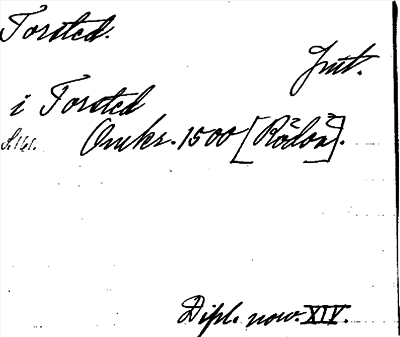 Torsted.
Jmt.
i Torsted
S. 161. Omkr. 1500 [Rödöx].
Dipl. norv. XIV.